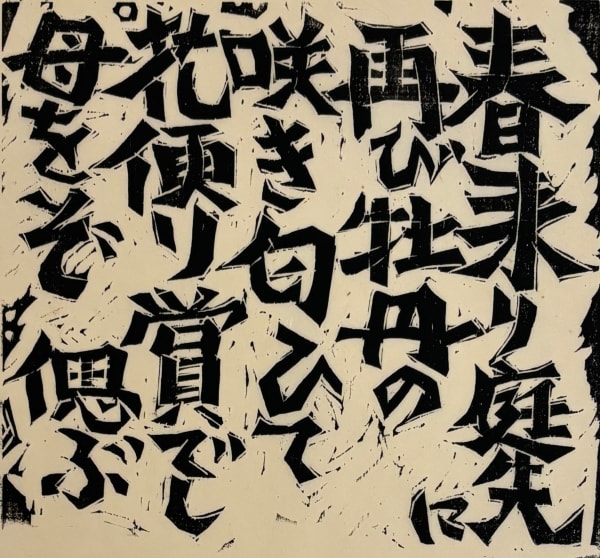 春来り庭先に
再び牡丹の
咲き匂ひて
花便り賞で
母をぞ偲ぶ